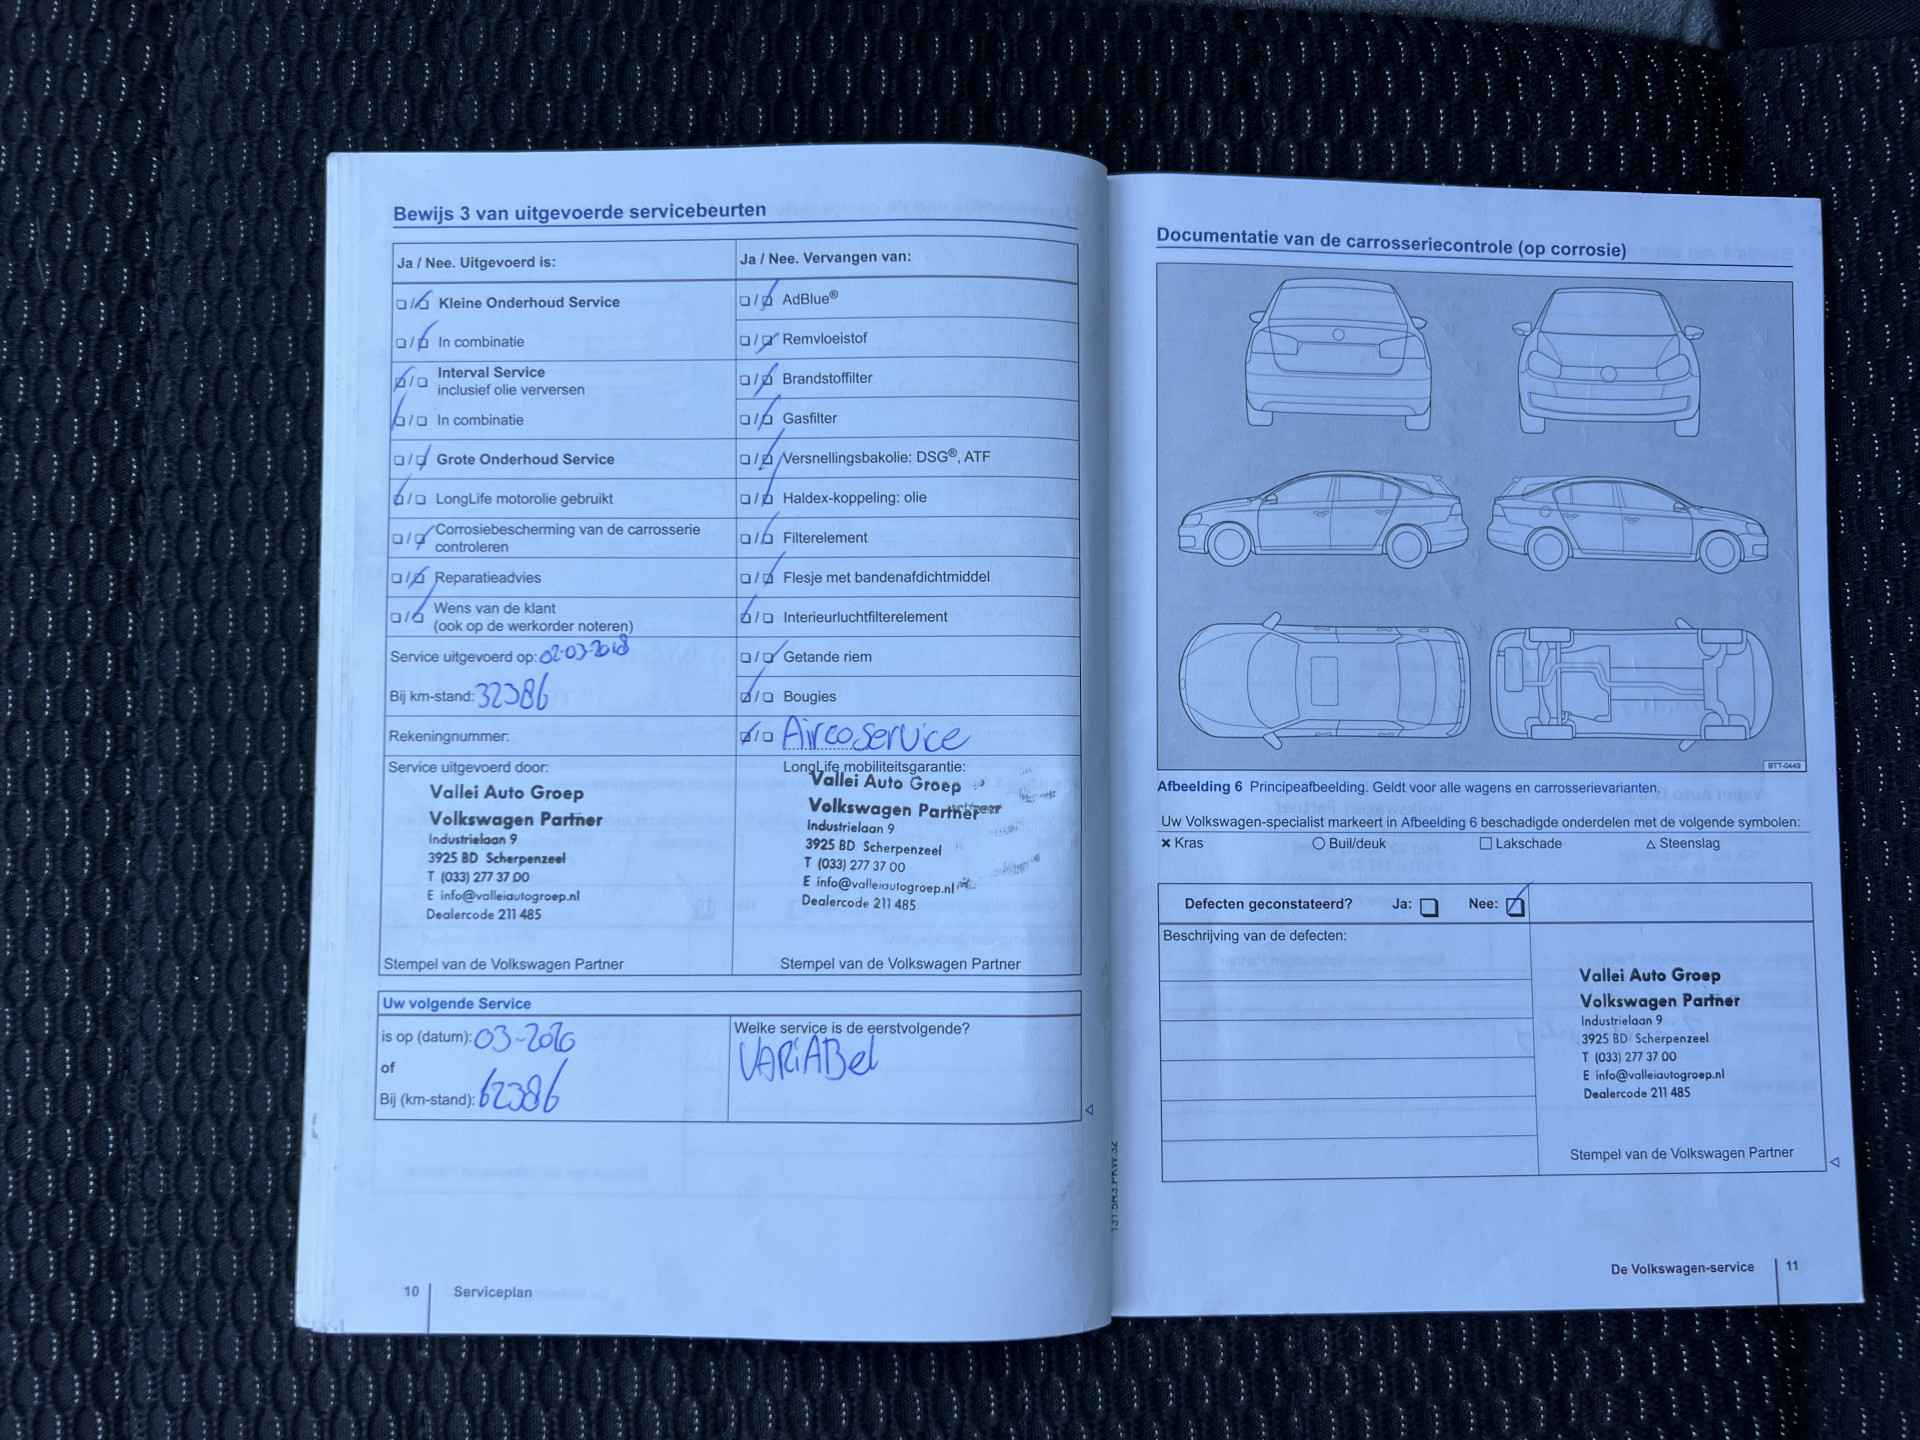 Bewijs 3 van uitgevoerde servicebeurten
Ja / Nee. Uitgevoerd is:
Kleine Onderhoud Service
In combinatie
Interval Service
inclusief olie verversen
In combinatie
Grote Onderhoud Service
LongLife motorolie gebruikt
Corrosiebescherming van de carrosserie
controleren
Reparatieadvies
Wens van de klant
(ook op de werkorder noteren)
Service uitgevoerd op: 02-03-2018
Bij km-stand: 32386
Rekeningnummer:
Service uitgevoerd door:
Vallei Auto Groep
Volkswagen Partner
Industrielaan 9
3925 BD Scherpenzeel
T (033) 277 37 00
E info@valleiautogroep.nl
Dealercode 211 485
Stempel van de Volkswagen Partner
Ja / Nee. Vervangen van:
AdBlue®
Remvloeistof
Brandstoffilter
Gasfilter
Versnellingsbakolie: DSG®, ATF
Haldex-koppeling: olie
Filterelement
Flesje met bandenafdichtmiddel
Interieurluchtfilterelement
Getande riem
Bougies
Aircoservice
LongLife mobiliteitsgarantie:
Vallei Auto Groep
Volkswagen Partner
Industrielaan 9
3925 BD Scherpenzeel
T (033) 277 37 00
E info@valleiautogroep.nl
Dealercode 211 485
Stempel van de Volkswagen Partner
Uw volgende Service
is op (datum): 03-2020
of
Bij (km-stand): 62386
Welke service is de eerstvolgende?
VARiABel
10 Serviceplan
Documentatie van de carrosseriecontrole (op corrosie)
BTT-0449
Afbeelding 6 Principeafbeelding. Geldt voor alle wagens en carrosserievarianten.
Uw Volkswagen-specialist markeert in Afbeelding 6 beschadigde onderdelen met de volgende symbolen:
Kras Buil/deuk Lakschade Steenslag
Defecten geconstateerd? Ja: Nee:
Beschrijving van de defecten:
Vallei Auto Groep
Volkswagen Partner
Industrielaan 9
3925 BD Scherpenzeel
T (033) 277 37 00
E info@valleiautogroep.nl
Dealercode 211 485
Stempel van de Volkswagen Partner
De Volkswagen-service 11